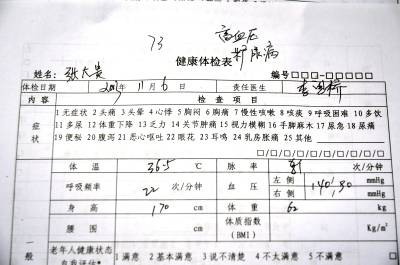 73 高血压
糖尿病
健康体检表
姓名: 张大贵 编号□□□-□□□□□
体检日期 2013年11月6日 责任医生
内容 检查项目
症状 1无症状 2头痛 3头晕 4心悸 5胸闷 6胸痛 7慢性咳嗽 8咳痰 9呼吸困难 10多饮
11多尿 12体重下降 13乏力 14关节肿痛 15视力模糊 16手脚麻木 17尿急 18尿痛
19便秘 20腹泻 21恶心呕吐 22眼花 23耳鸣 24乳房胀痛 25其他
□/□/□/□/□/□/□/□/□/□
体温 36.5 ℃ 脉率 81 次/分钟
呼吸频率 22 次/分钟 血压 左侧 140/90 mmHg
右侧 mmHg
身高 170 cm 体重 62 kg
腰围 cm 体质指数(BMI) Kg/m²
一般 老年人健康状态 1满意 2基本满意 3说不清楚 4不太满意 5不满意
自我评估*